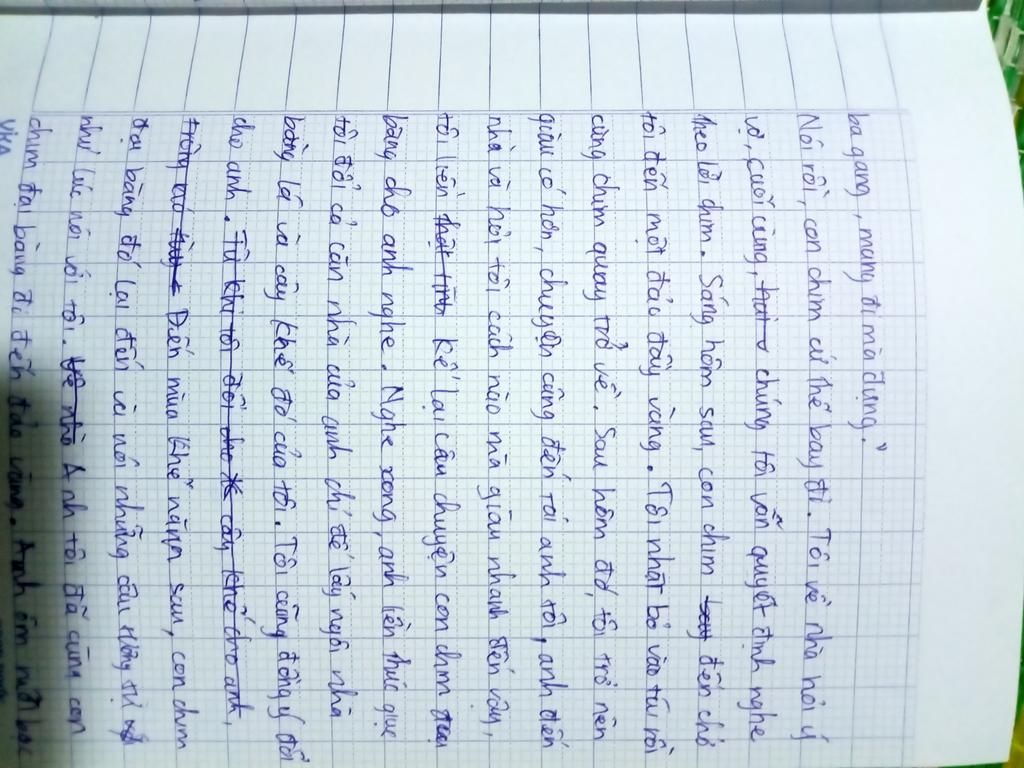 ba gang, mang đi mà đựng."
Nói rồi, con chim cứ thế bay đi. Tôi về nhà hỏi ý
vợ, cuối cùng, chúng tôi vẫn quyết định nghe
theo lời chim. Sáng hôm sau, con chim đến chở
tôi đến một đảo đầy vàng. Tôi nhặt bỏ vào túi rồi
cùng chim quay trở về. Sau hôm đó, tôi trở nên
giàu có hơn, chuyện cũng đến tai anh tôi, anh đến
nhà và hỏi tôi cách nào mà giàu nhanh đến vậy,
tôi liền kể lại câu chuyện con chim đại
bàng cho anh nghe. Nghe xong, anh liền thúc giục
tôi đổi cả căn nhà của anh chỉ để lấy ngôi nhà
bằng lá và cây khế đó của tôi. Tôi cũng đồng ý đổi
cho anh. Từ khi tôi đổi cây khế cho anh,
Đến mùa khế năm sau, con chim
đại bàng đó lại đến và nói những câu tương tự
như lúc nói với tôi. Anh tôi đã cùng con
chim đại bàng đi đến đảo vàng. Anh ôm một bọc